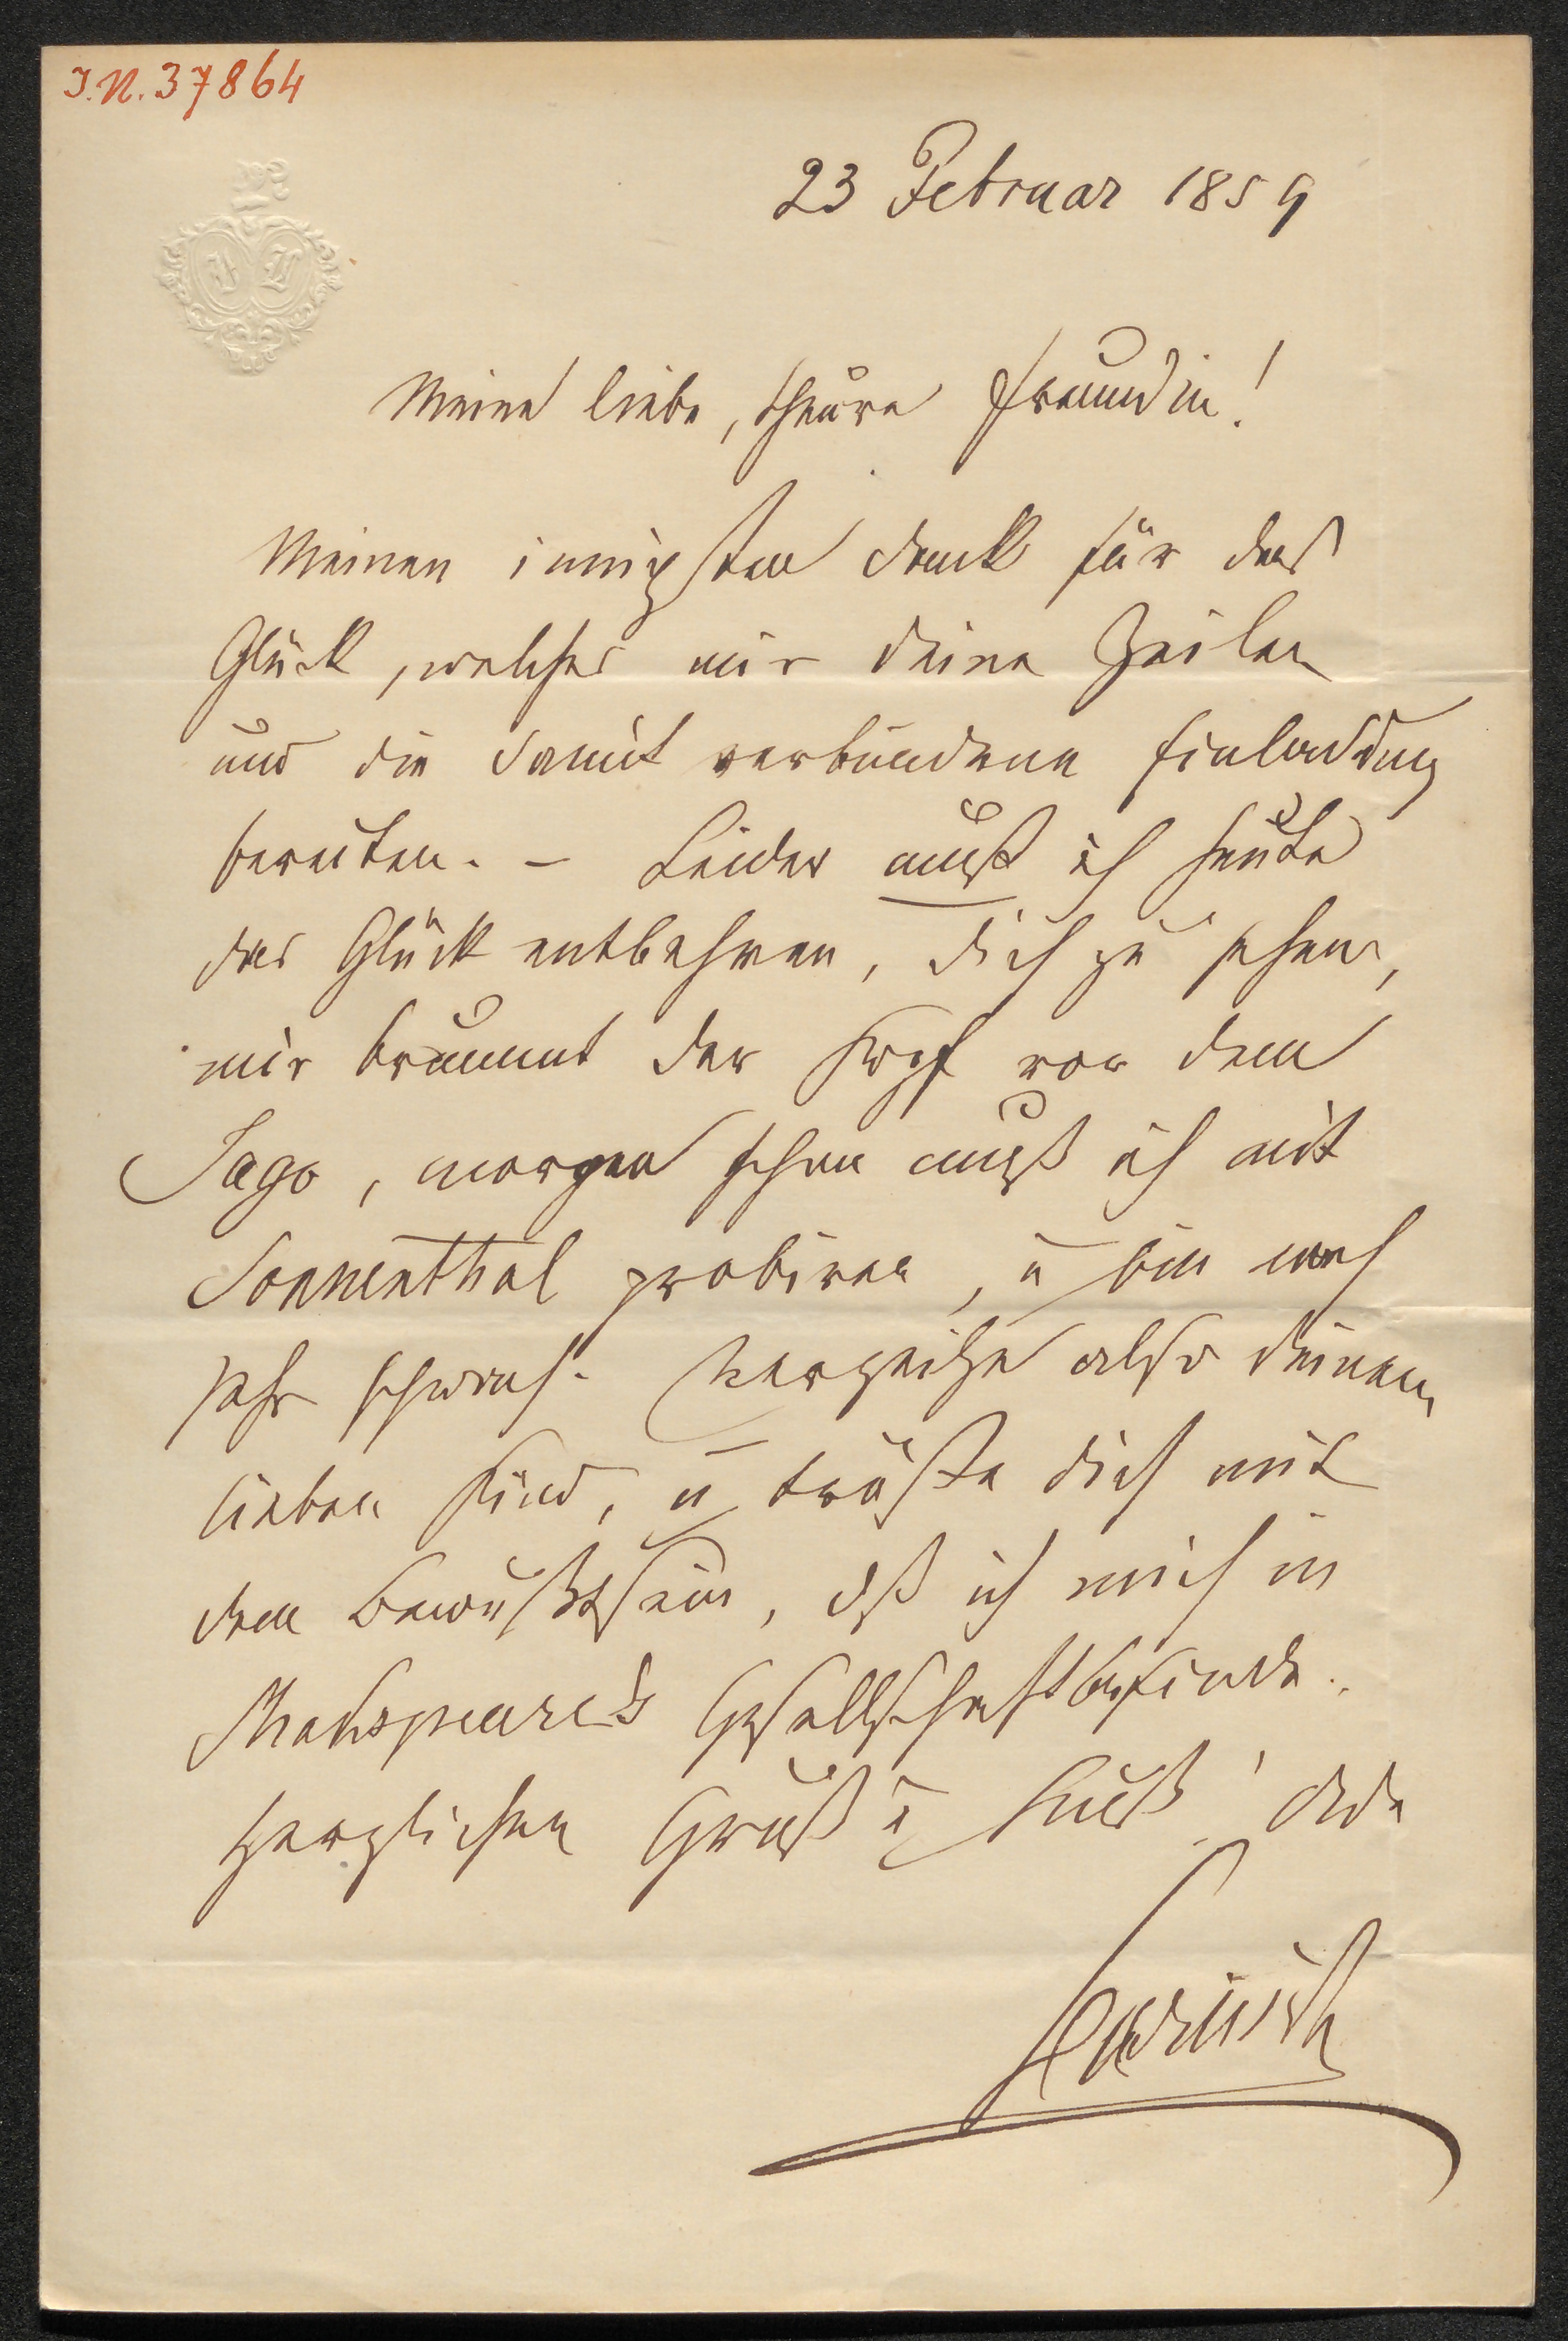 J.N. 37864
23 Februar 1859
Meine liebe, theure Freundin!
Meinen innigsten Dank für das
Glück, welches mir Deine Zeilen
und die damit verbundene Einladung
bereiten. – Leider muß ich heute
das Glück entbehren, Dich zu sehen,
mir brummt der Kopf von dem
Jago, morgen schon muß ich mit
Sonnenthal probiren, u bin noch
sehr schwach. Verzeihe also Deinem
lieben Kind, u tröste Dich mit
dem Bewußtsein, dß ich mich in
Shakspeare's Gesellschaft befinde.
Herzlichen Gruß u Kuß!